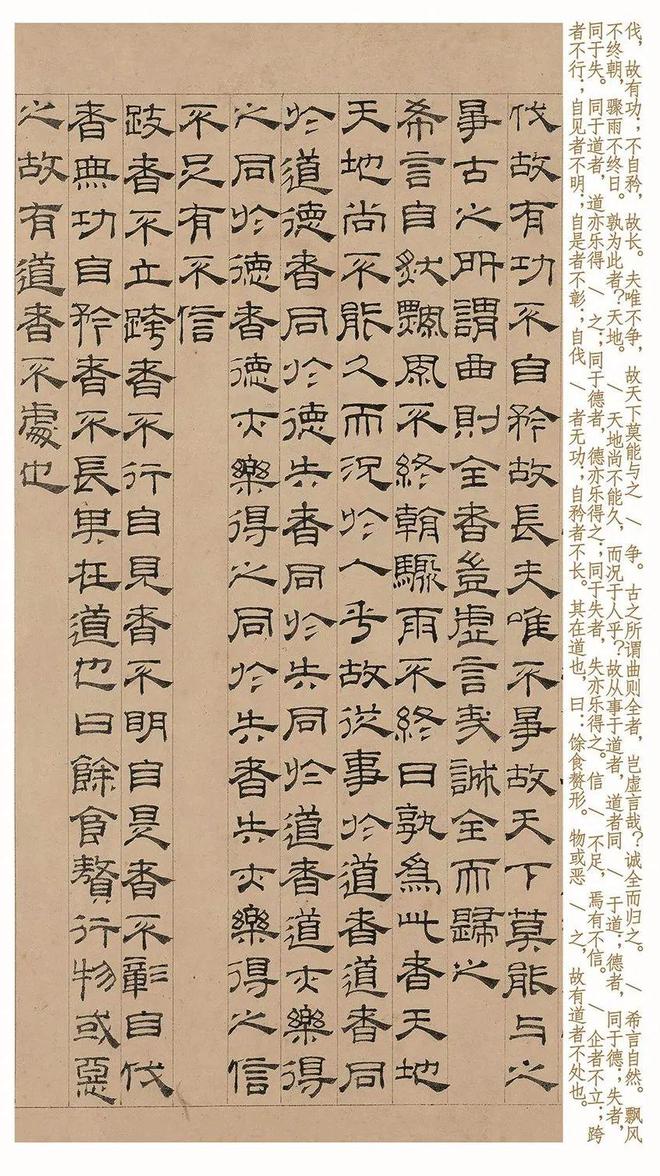 伐，故有功；不自矜，故长。夫唯不争，故天下莫能与之 \ 争。古之所谓曲则全者，岂虚言哉？诚全而归之。 \ 希言自然。飘风
不终朝，骤雨不终日。孰为此者？天地。 \ 天地尚不能久，而况于人乎？故从事于道者，道者同 \ 于道；德者，同于德；失者，
同于失。同于道者，道亦乐得 \ 之；同于德者，德亦乐得之；同于失者，失亦乐得之。信 \ 不足，焉有不信。 \ 企者不立；跨
者不行；自见者不明；自是者不彰；自伐 \ 者无功；自矜者不长。其在道也，曰：馀食赘形。物或恶 \ 之，故有道者不处也。
伐故有功不自矜故長夫唯不爭故天下莫能与之
爭古之所謂曲則全者豈虛言哉誠全而歸之
希言自然飄風不終朝驟雨不終日孰為此者天地
天地尚不能久而況於人乎故從事於道者道者同
於道德者同於德失者同於失同於道者道亦樂得
之同於德者德亦樂得之同於失者失亦樂得之信
不足有不信
跂者不立跨者不行自見者不明自是者不彰自伐
者無功自矜者不長其在道也曰餘食贅行物或惡
之故有道者不處也